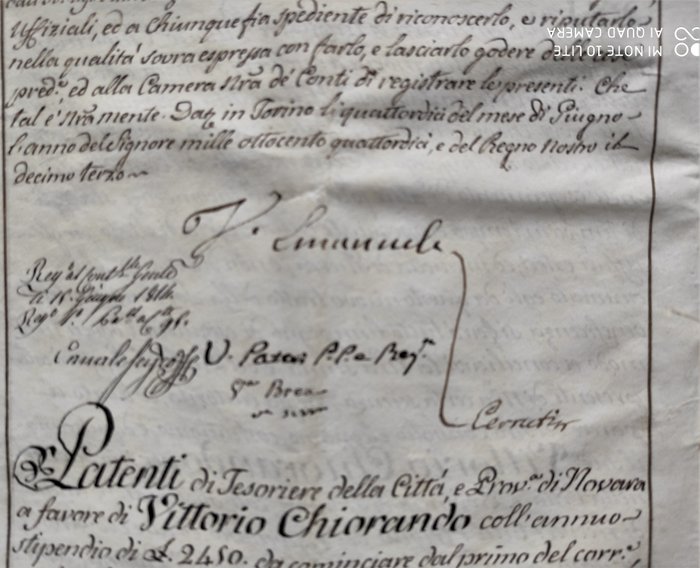 Uffiziali, ed a Chiunque fia spediente di riconoscerlo, e riputarlo
nella qualità sovra espressa con farlo, e lasciarlo godere
pred.e, ed alla Camera nr̃a de' Conti di registrare le presenti. Che
tal è nr̃a mente. Dat. in Torino li quattordici del mese di Giugno
l'anno del Signore mille ottocento quattordici, e del Regno nostro il
decimo terzo
V. Emanuele
Giugno 1814.
V.
P.P. e Reg.e
Brea
Cerruti
Patenti di Tesoriere della Città, e Prov.a di Novara
a favore di Vittorio Chiorando coll'annuo
stipendio di £. 2450. da cominciare dal primo del corr.e,
MI NOTE 10 LITE
AI QUAD CAMERA